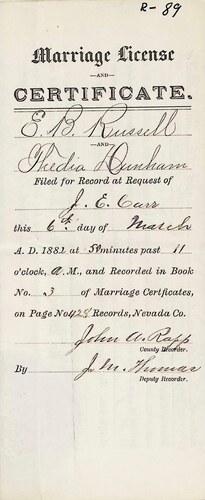 R-89
Marriage License
—AND—
CERTIFICATE.
E. B. Russell
—AND—
Thedia Dunham
Filed for Record at Request of
J. E. Carr
this 6th day of March
A. D. 1882 at 50 minutes past 11
o'clock, A. M., and Recorded in Book
No. 3 of Marriage Certficates,
on Page No. 428 Records, Nevada Co.
John A. Rapp
County Recorder.
By J. M. Thomas
Deputy Recorder.